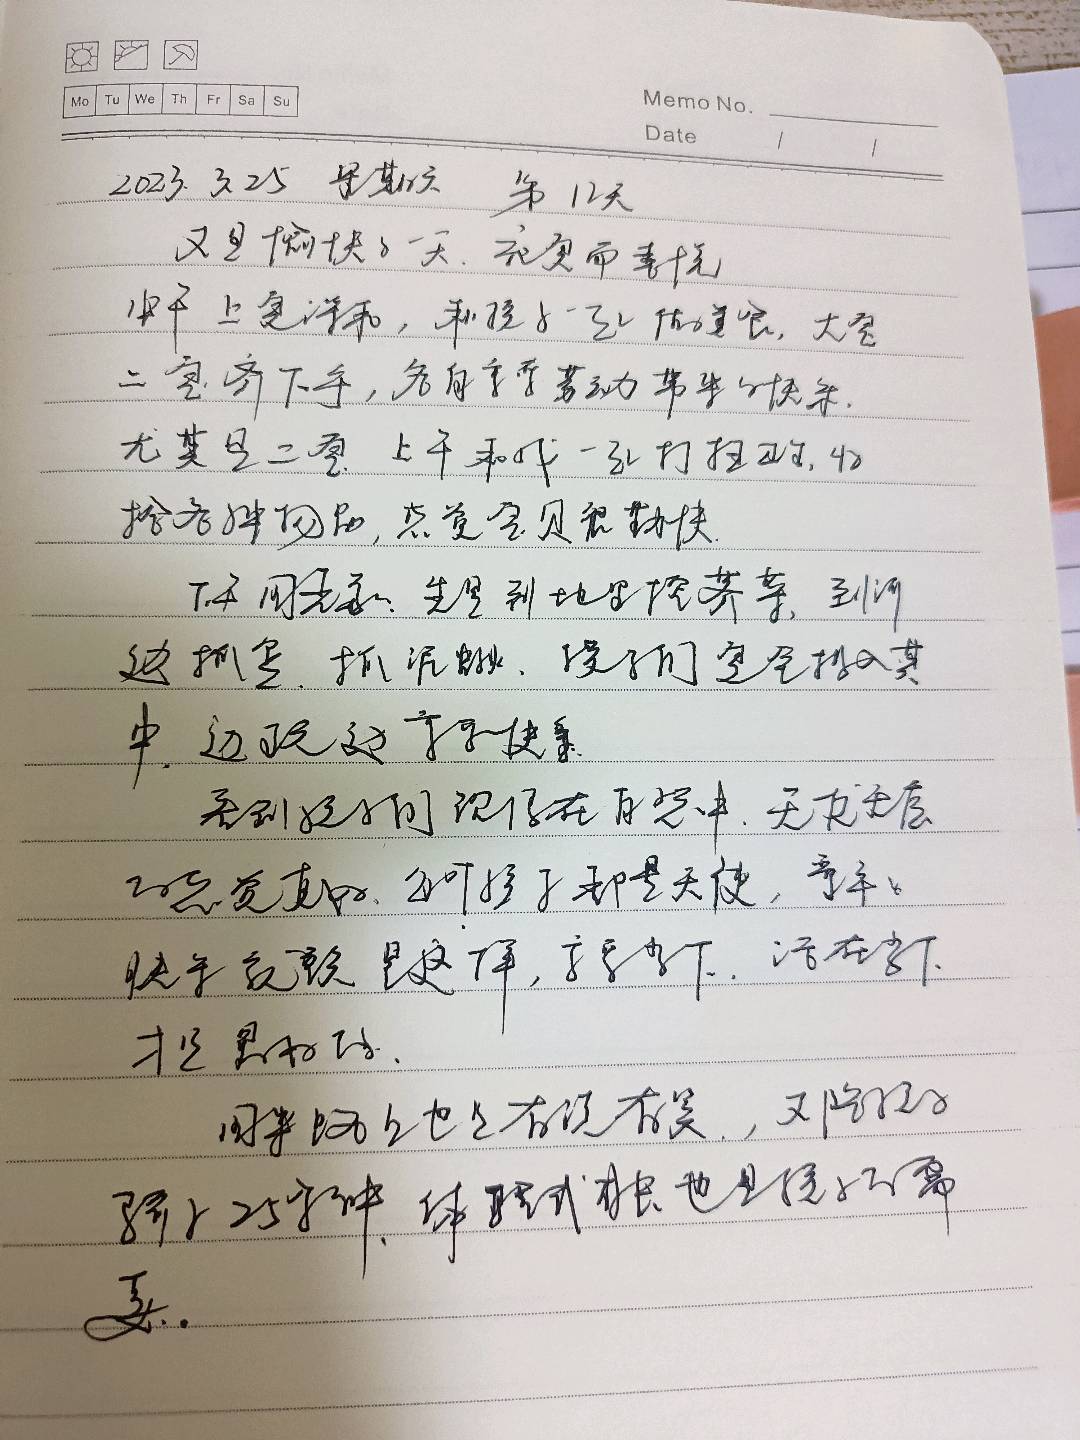 Mo Tu We Th Fr Sa Su
Memo No.
Date / /
2023.3.25 星期六 第12天
又是愉快的一天.充实而喜悦
中午上完课和,和孩子一起做美食,大宝
二宝齐下手,各自享受劳动带来的快乐.
尤其是二宝.上午和我一起打扫卫生,收
拾各种物品,感觉宝贝很勤快.
下午 先是到地里挖荠菜,到河
边抓鱼.抓泥鳅.孩子们完全投入其
中.边玩边享受快乐.
看到孩子们沉浸在自然中.无忧无虑
的感觉真好.每个孩子都是天使,童年的
快乐就是这样,享受当下.活在当下
才是最好的.
回来路上也是有说有笑.,又陪孩子
骑了25分钟.体验式成长也是孩子的需
要..